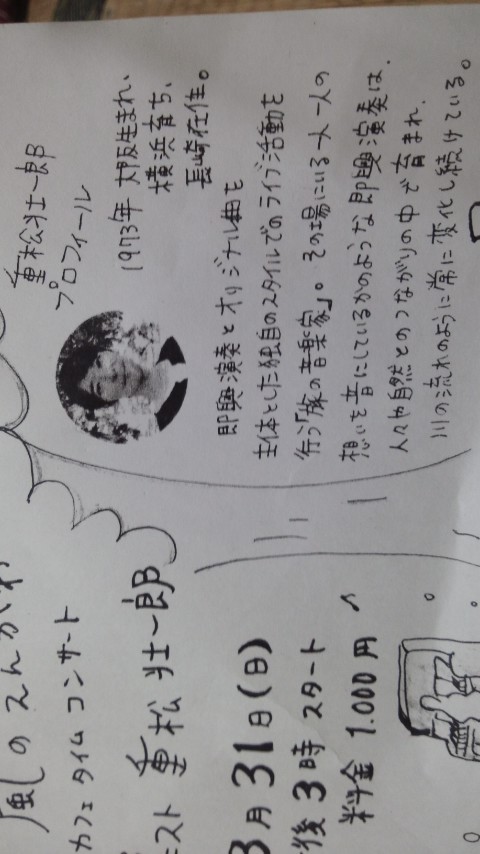 風のえんがわ
カフェタイムコンサート
スト 重松壮一郎
3月31日(日)
後3時 スタート
料金 1.000円
重松壮一郎
プロフィール
1973年 大阪生まれ、
横浜育ち、
長崎在住。
即興演奏とオリジナル曲を
主体とした独自のスタイルでのライブ活動を
行う「旅の音楽家」。その場にいる一人一人の
想いを音にしているかのような即興演奏は、
人々や自然とのつながりの中で育まれ、
川の流れのように常に変化し続けている。